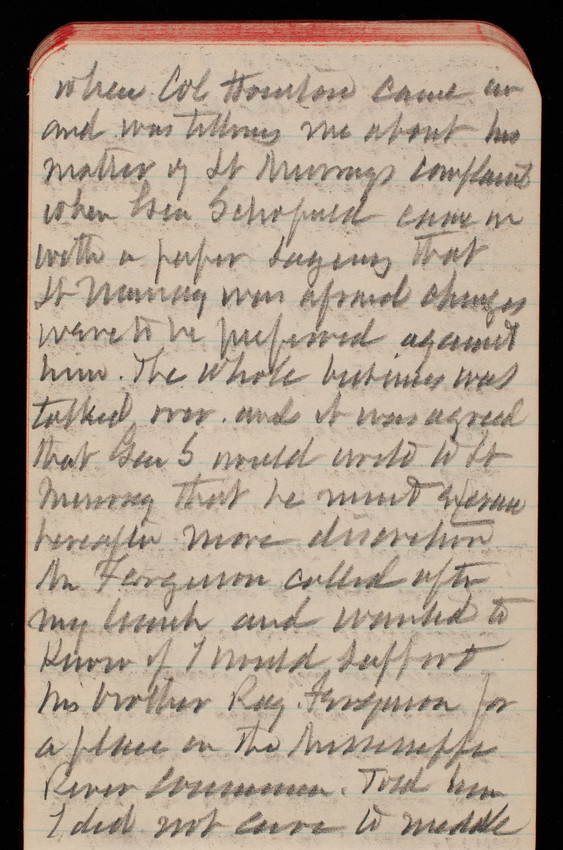 when Col Houston came in
and was telling me about his
matter of Lt Murrays complaint
when Gen Schofield came in
with a paper saying that
Lt Murray was afraid charges
were to be preferred against
him. The whole business was
talked over and it was agreed
that Gen S would write to Lt
Murray that he must
hereafter more discretion
Mr Ferguson called after
my lunch and wanted to
know if I would support
his brother Ferguson for
a place on the Mississippi
River Commission. Told him
I did not care to meddle